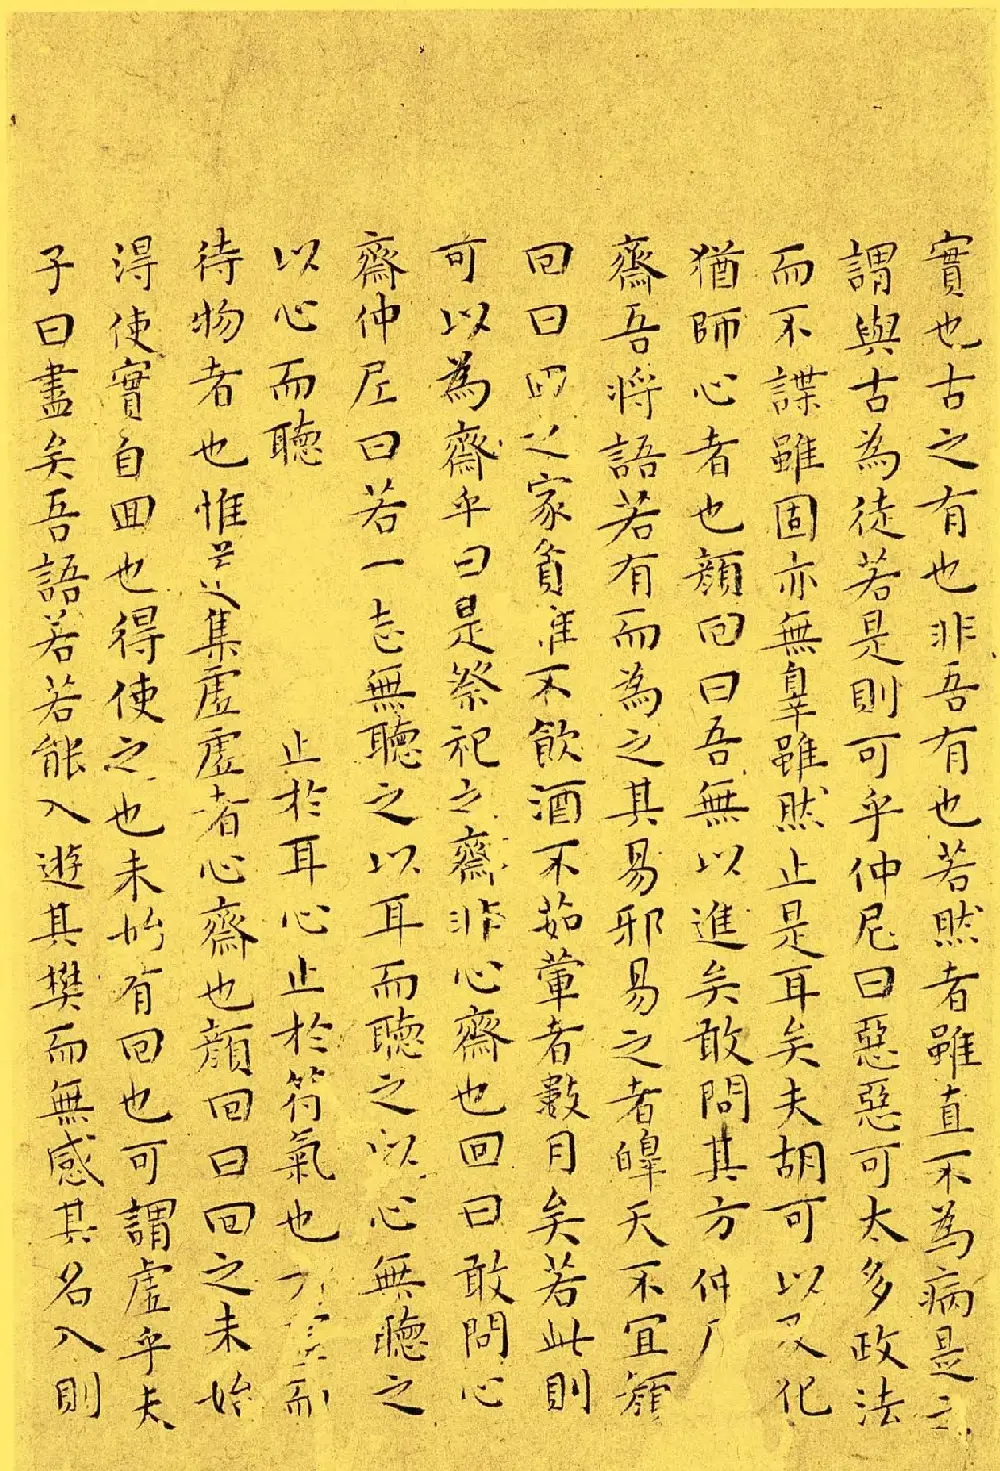 實也古之有也非吾有也若然者雖直不為病是之
謂與古為徒若是則可乎仲尼曰惡惡可太多政法
而不諜雖固亦無辠雖然止是耳矣夫胡可以及化
猶師心者也顏回曰吾無以進矣敢問其方仲
齋吾將語若有而為之其易邪易之者皥天不宜顏
回曰回之家貧唯不飲酒不茹葷者數月矣若此則
可以為齋乎曰是祭祀之齋非心齋也回曰敢問心
齋仲尼曰若一志無聽之以耳而聽之以心無聽之
以心而聽 止於耳心止於符氣也而
待物者也惟集虛虛者心齋也顏回曰回之未始
得使實自回也得使之也未始有回也可謂虛乎夫
子曰盡矣吾語若若能入遊其樊而無感其名入則